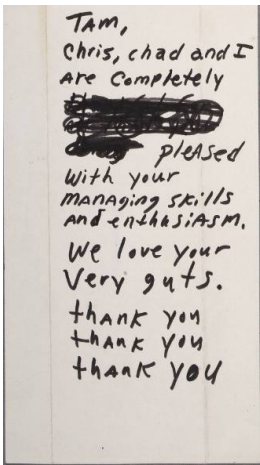 TAM,
Chris, chad and I
Are Completely
pleAsed
With your
mANAging skills
And enthusiAsm.
We love your
Very guts.
thank you
thank you
thank you